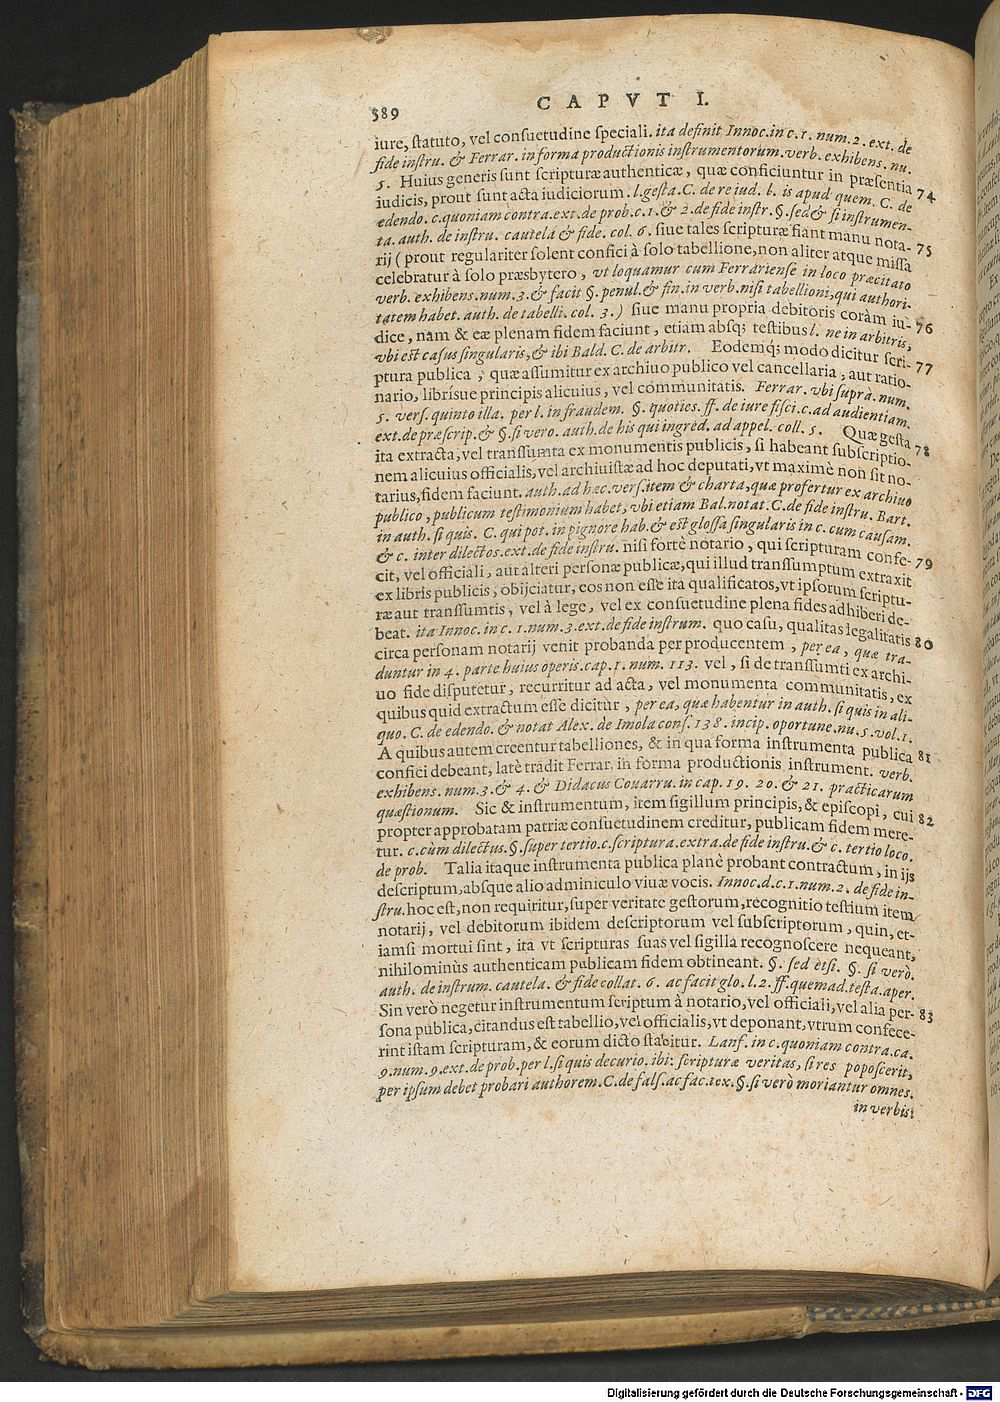 589
CAPVT I.
iure, statuto, vel consuetudine speciali. ita definit Innoc. in c. 1. num. 2. ext. de
fide instru. & Ferrar. in forma productionis instrumentorum. verb. exhibens. nu.
5. Huius generis sunt scripturæ authenticæ, quæ conficiuntur in præsentia 74
iudicis, prout sunt acta iudiciorum. l. gesta. C. de re iud. l. is apud quem. C. de
edendo. c. quoniam contra. ext. de prob. c. 1. & 2. de fide instr. §. sed & si instrumen-
ta. auth. de instru. cautela & fide. col. 6. siue tales scripturæ fiant manu nota- 75
rij (prout regulariter solent confici à solo tabellione, non aliter atque missa
celebratur à solo præsbytero, vt loquamur cum Ferrariense in loco præcitato
verb. exhibens. num. 3. & facit §. penul. & fin. in verb. nisi tabellioni, qui authori-
tatem habet. auth. de tabelli. col. 3.) siue manu propria debitoris coràm iu- 76
dice, nam & eæ plenam fidem faciunt, etiam absq; testibus l. ne in arbitris,
vbi est casus singularis, & ibi Bald. C. de arbitr. Eodemq; modo dicitur scri- 77
ptura publica, quæ assumitur ex archiuo publico vel cancellaria, aut ratio-
nario, librisue principis alicuius, vel communitatis. Ferrar. vbi suprà. num.
5. vers. quinto illa. per l. in fraudem. §. quoties. ff. de iure fisci. c. ad audientiam.
ext. de præscrip. & §. si vero. auth. de his qui ingred. ad appel. coll. 5. Quæ gesta 78
ita extracta, vel transsumta ex monumentis publicis, si habeant subscriptio-
nem alicuius officialis, vel archiuistæ ad hoc deputati, vt maximè non sit no-
tarius, fidem faciunt. auth. ad hæc. vers. item & charta, quæ profertur ex archiuo
publico, publicum testimonium habet, vbi etiam Bal. notat. C. de fide instru. Bart.
in auth. si quis. C. qui pot. in pignore hab. & est glossa singularis in c. cum causam.
& c. inter dilectos. ext. de fide instru. nisi fortè notario, qui scripturam confe- 79
cit, vel officiali, aut alteri personæ publicæ, qui illud transsumptum extraxit
ex libris publicis, obijciatur, eos non esse ita qualificatos, vt ipsorum scriptu-
ræ aut transsumtis, vel à lege, vel ex consuetudine plena fides adhiberi de-
beat. ita Innoc. in c. 1. num. 3. ext. de fide instrum. quo casu, qualitas legalitatis 80
circa personam notarij venit probanda per producentem, per ea, quæ tra-
duntur in 4. parte huius operis. cap. 1. num. 113. vel, si de transsumti ex archi-
uo fide disputetur, recurritur ad acta, vel monumenta communitatis, ex
quibus quid extractum esse dicitur, per ea, quæ habentur in auth. si quis in ali-
quo. C. de edendo. & notat Alex. de Imola cons. 138. incip. oportune. nu. 5. vol. 1.
A quibus autem creentur tabelliones, & in qua forma instrumenta publica 81
confici debeant, latè tradit Ferrar. in forma productionis instrument. verb.
exhibens. num. 3. & 4. & Didacus Couarru. in cap. 19. 20. & 21. practicarum
quæstionum. Sic & instrumentum, item sigillum principis, & episcopi, cui 82
propter approbatam patriæ consuetudinem creditur, publicam fidem mere-
tur. c. cùm dilectus. §. super tertio. c. scriptura. extra. de fide instru. & c. tertio loco.
de prob. Talia itaque instrumenta publica planè probant contractum, in ijs
descriptum, absque alio adminiculo viuæ vocis. Innoc. d. c. 1. num. 2. de fide in-
stru. hoc est, non requiritur, super veritate gestorum, recognitio testium item
notarij, vel debitorum ibidem descriptorum vel subscriptorum, quin, et-
iamsi mortui sint, ita vt scripturas suas vel sigilla recognoscere nequeant,
nihilominùs authenticam publicam fidem obtineant. §. sed etsi. §. si verò.
auth. de instrum. cautela. & fide collat. 6. ac facit glo. l. 2. ff. quemad. testa. aper.
Sin verò negetur instrumentum scriptum à notario, vel officiali, vel alia per- 83
sona publica, citandus est tabellio, vel officialis, vt deponant, vtrum confece-
rint istam scripturam, & eorum dicto stabitur. Lanf. in c. quoniam contra. ca.
9. num. 9. ext. de prob. per l. si quis decurio. ibi: scripturæ veritas, si res poposcerit,
per ipsum debet probari authorem. C. de fals. ac fac. tex. §. si verò moriantur omnes.
in verbis:
Digitalisierung gefördert durch die Deutsche Forschungsgemeinschaft - DFG